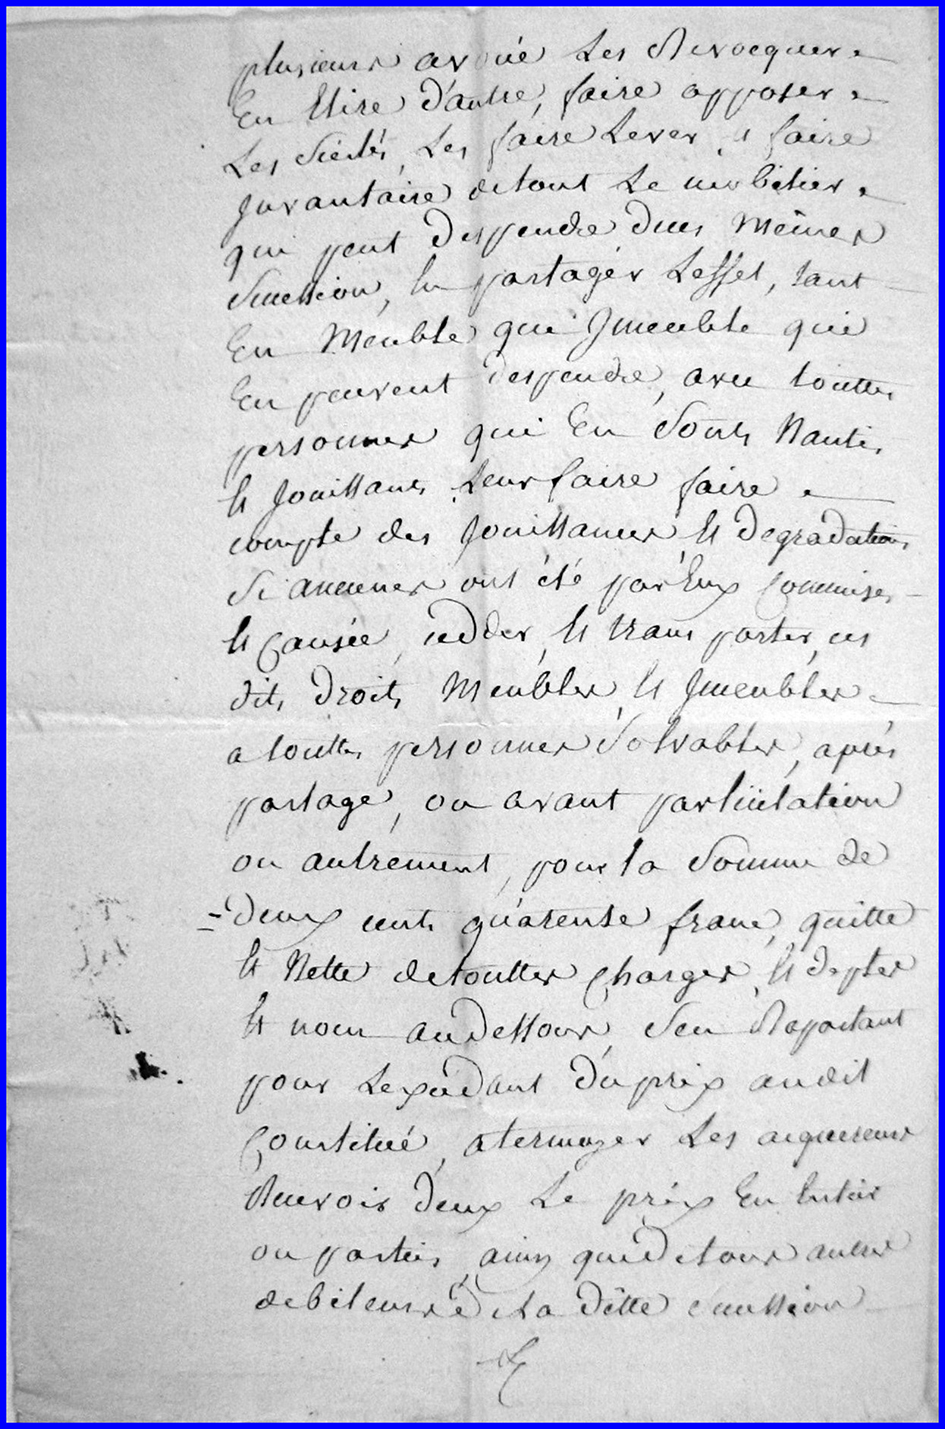 plusieurs avoué Les Revocquer
En Elire d'autre, faire apposer
Les Scélés, Les faire Lever, Et faire
Juvantaire detout Le mobilier
qui peut despendre dues Mêmes
Sucession, En partager Leffet, tant
En Meuble que Jmeuble qui
En peuvent despendre, avec touttes
personnes qui En Sonts Nantis
Et Jouissants Leur faire faire
compte des Jouissances Et degradations
Si aucunes ont été par Eux Commises
Et Causée, cedder, Et trans porter, ces
dits Droits Meubles, Et Jmeubles
a touttes personnes Solvables, aprés
partage, ou avant particulation
ou autrement, pour la Somme de
deux cents quarente franc, quitte
Et Nette detouttes Charges, Et deptes
Et nom au Dessous, Sen Raportant
pour Lexcedant du prix audit
Constitué, atermoyer Les acquereurs
Recevoir deux Le prix En Entier
ou parties, ainsy que detous autres
debiteurs de La ditte Sucession